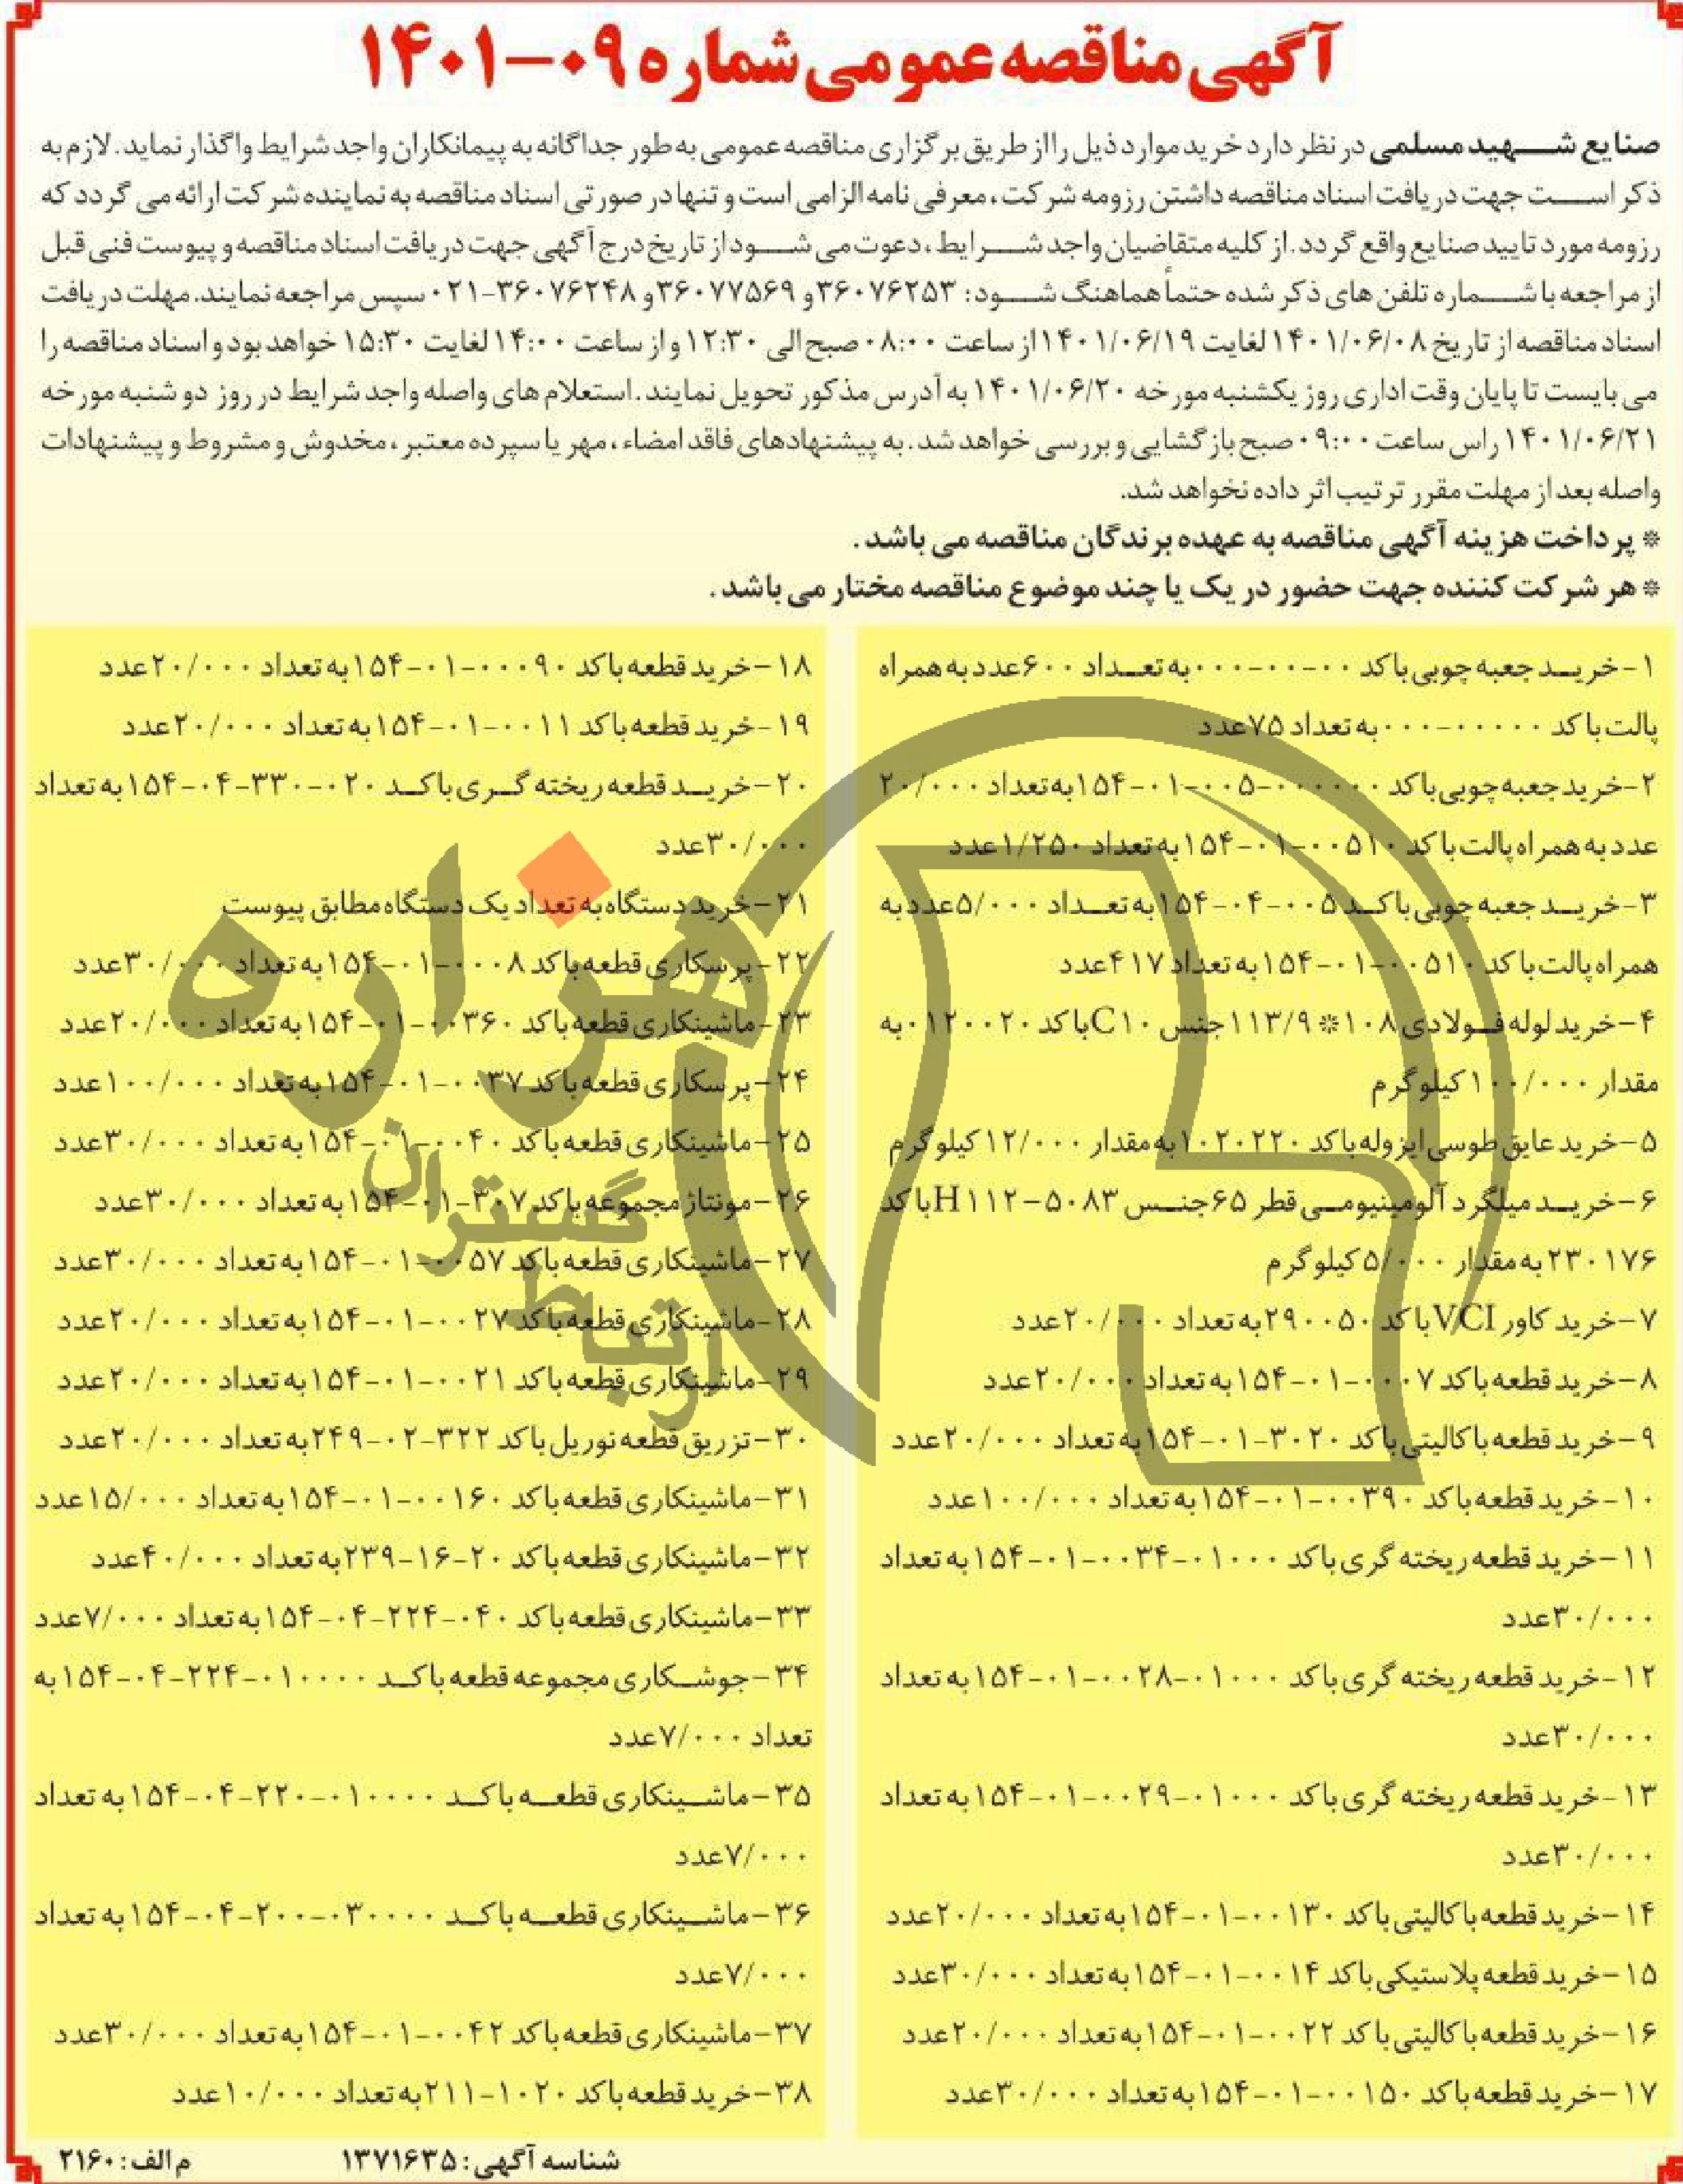 آگهی مناقصه عمومی شماره ۰۹-۱۴۰۱
صنایع شهید مسلمی در نظر دارد خرید موارد ذیل را از طریق برگزاری مناقصه عمومی به طور جداگانه به پیمانکاران واجد شرایط واگذار نماید. لازم به
ذکر است جهت دریافت اسناد مناقصه داشتن رزومه شرکت، معرفی نامه الزامی است و تنها در صورتی اسناد مناقصه به نماینده شرکت ارائه می گردد که
رزومه مورد تایید صنایع واقع گردد. از کلیه متقاضیان واجد شرایط، دعوت می شود از تاریخ درج آگهی جهت دریافت اسناد مناقصه و پیوست فنی قبل
از مراجعه با شماره تلفن های ذکر شده حتماً هماهنگ شود: ۳۶۰۷۶۲۵۳ و ۳۶۰۷۷۵۶۹ و ۳۶۰۷۶۲۴۸-۰۲۱ سپس مراجعه نمایند. مهلت دریافت
اسناد مناقصه از تاریخ ۱۴۰۱/۰۶/۰۸ لغایت ۱۴۰۱/۰۶/۱۹ از ساعت ۰۸:۰۰ صبح الی ۱۲:۳۰ و از ساعت ۱۴:۰۰ لغایت ۱۵:۳۰ خواهد بود و اسناد مناقصه را
می بایست تا پایان وقت اداری روز یکشنبه مورخه ۱۴۰۱/۰۶/۲۰ به آدرس مذکور تحویل نمایند. استعلام های واصله واجد شرایط در روز دوشنبه مورخه
۱۴۰۱/۰۶/۲۱ راس ساعت ۰۹:۰۰ صبح بازگشایی و بررسی خواهد شد. به پیشنهادهای فاقد امضاء، مهر یا سپرده معتبر، مخدوش و مشروط و پیشنهادات
واصله بعد از مهلت مقرر ترتیب اثر داده نخواهد شد.
* پرداخت هزینه آگهی مناقصه به عهده برندگان مناقصه می باشد.
* هر شرکت کننده جهت حضور در یک یا چند موضوع مناقصه مختار می باشد.
۱-خرید جعبه چوبی با کد ۰۰-۰۰-۰۰۰ به تعداد ۶۰۰ عدد به همراه
پالت با کد ۰۰۰۰۰-۰۰۰ به تعداد ۷۵ عدد
۲-خرید جعبه چوبی با کد ۰۰۰۰۰۰-۰۰۵-۰۱-۱۵۴ به تعداد ۲۰/۰۰۰
عدد به همراه پالت با کد ۰۰۵۱۰-۰۱-۱۵۴ به تعداد ۱/۲۵۰ عدد
۳-خرید جعبه چوبی با کد ۰۰۵-۰۴-۱۵۴ به تعداد ۵/۰۰۰ عدد به
همراه پالت با کد ۰۰۵۱۰-۰۱-۱۵۴ به تعداد ۴۱۷ عدد
۴-خرید لوله فولادی ۱۰۸*۱۱۳/۹ جنس C۱۰ با کد ۰۱۲۰۰۲۰ به
مقدار ۱۰۰/۰۰۰ کیلوگرم
۵-خرید عایق طوسی ایزوله با کد ۱۰۲۰۲۲۰ به مقدار ۱۲/۰۰۰ کیلوگرم
۶-خرید میلگرد آلومینیومی قطر ۶۵ جنس ۵۰۸۳-H۱۱۲ با کد
۲۳۰۱۷۶ به مقدار ۵/۰۰۰ کیلوگرم
۷-خرید کاور VCI با کد ۲۹۰۰۵۰ به تعداد ۲۰/۰۰۰ عدد
۸-خرید قطعه با کد ۰۰۰۷-۰۱-۱۵۴ به تعداد ۲۰/۰۰۰ عدد
۹-خرید قطعه باکالیتی با کد ۳۰۲۰-۰۱-۱۵۴ به تعداد ۲۰/۰۰۰ عدد
۱۰-خرید قطعه با کد ۰۰۳۹۰-۰۱-۱۵۴ به تعداد ۱۰۰/۰۰۰ عدد
۱۱-خرید قطعه ریخته گری با کد ۰۱۰۰۰-۰۰۳۴-۰۱-۱۵۴ به تعداد
۳۰/۰۰۰ عدد
۱۲-خرید قطعه ریخته گری با کد ۰۱۰۰۰-۰۰۲۸-۰۱-۱۵۴ به تعداد
۳۰/۰۰۰ عدد
۱۳-خرید قطعه ریخته گری با کد ۰۱۰۰۰-۰۰۲۹-۰۱-۱۵۴ به تعداد
۳۰/۰۰۰ عدد
۱۴-خرید قطعه باکالیتی با کد ۰۰۱۳۰-۰۱-۱۵۴ به تعداد ۲۰/۰۰۰ عدد
۱۵-خرید قطعه پلاستیکی با کد ۰۰۱۴-۰۱-۱۵۴ به تعداد ۳۰/۰۰۰ عدد
۱۶-خرید قطعه باکالیتی با کد ۰۰۲۲-۰۱-۱۵۴ به تعداد ۲۰/۰۰۰ عدد
۱۷-خرید قطعه با کد ۰۰۱۵۰-۰۱-۱۵۴ به تعداد ۳۰/۰۰۰ عدد
۱۸-خرید قطعه با کد ۰۰۰۹۰-۰۱-۱۵۴ به تعداد ۲۰/۰۰۰ عدد
۱۹-خرید قطعه با کد ۰۰۱۱-۰۱-۱۵۴ به تعداد ۲۰/۰۰۰ عدد
۲۰-خرید قطعه ریخته گری با کد ۰۲۰-۳۳۰-۰۴-۱۵۴ به تعداد
۳۰/۰۰۰ عدد
۲۱-خرید دستگاه به تعداد یک دستگاه مطابق پیوست
۲۲-پرسکاری قطعه با کد ۰۰۰۸-۰۱-۱۵۴ به تعداد ۳۰/۰۰۰ عدد
۲۳-ماشینکاری قطعه با کد ۰۰۳۶۰-۰۱-۱۵۴ به تعداد ۲۰/۰۰۰ عدد
۲۴-پرسکاری قطعه با کد ۰۰۳۷-۰۱-۱۵۴ به تعداد ۱۰۰/۰۰۰ عدد
۲۵-ماشینکاری قطعه با کد ۰۰۴۰-۰۱-۱۵۴ به تعداد ۳۰/۰۰۰ عدد
۲۶-مونتاژ مجموعه با کد ۳۰۷-۰۱-۱۵۴ به تعداد ۳۰/۰۰۰ عدد
۲۷-ماشینکاری قطعه با کد ۰۰۵۷-۰۱-۱۵۴ به تعداد ۳۰/۰۰۰ عدد
۲۸-ماشینکاری قطعه با کد ۰۰۲۷-۰۱-۱۵۴ به تعداد ۲۰/۰۰۰ عدد
۲۹-ماشینکاری قطعه با کد ۰۰۲۱-۰۱-۱۵۴ به تعداد ۲۰/۰۰۰ عدد
۳۰-تزریق قطعه نوریل با کد ۳۲۲-۰۲-۲۴۹ به تعداد ۲۰/۰۰۰ عدد
۳۱-ماشینکاری قطعه با کد ۰۰۱۶۰-۰۱-۱۵۴ به تعداد ۱۵/۰۰۰ عدد
۳۲-ماشینکاری قطعه با کد ۲۰-۱۶-۲۳۹ به تعداد ۴۰/۰۰۰ عدد
۳۳-ماشینکاری قطعه با کد ۰۴۰-۲۲۴-۰۴-۱۵۴ به تعداد ۷/۰۰۰ عدد
۳۴-جوشکاری مجموعه قطعه با کد ۰۱۰۰۰۰-۲۲۴-۰۴-۱۵۴ به
تعداد ۷/۰۰۰ عدد
۳۵-ماشینکاری قطعه با کد ۰۱۰۰۰۰-۲۲۰-۰۴-۱۵۴ به تعداد
۷/۰۰۰ عدد
۳۶-ماشینکاری قطعه با کد ۰۳۰۰۰۰-۲۰۰-۰۴-۱۵۴ به تعداد
۷/۰۰۰ عدد
۳۷-ماشینکاری قطعه با کد ۰۰۴۲-۰۱-۱۵۴ به تعداد ۳۰/۰۰۰ عدد
۳۸-خرید قطعه با کد ۱۰۲۰-۲۱۱ به تعداد ۱۰/۰۰۰ عدد
هزاره
ارتباط
گستران
شناسه آگهی: ۱۳۷۱۶۳۵
م الف: ۲۱۶۰